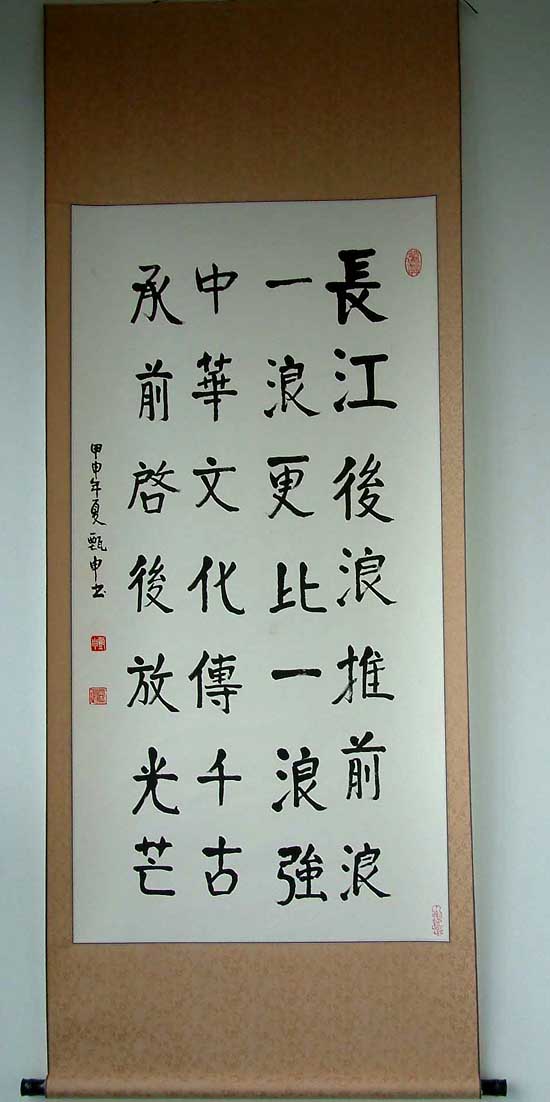 長江後浪推前浪
一浪更比一浪強
中華文化傳千古
承前啓後放光芒
甲申年夏甄申书